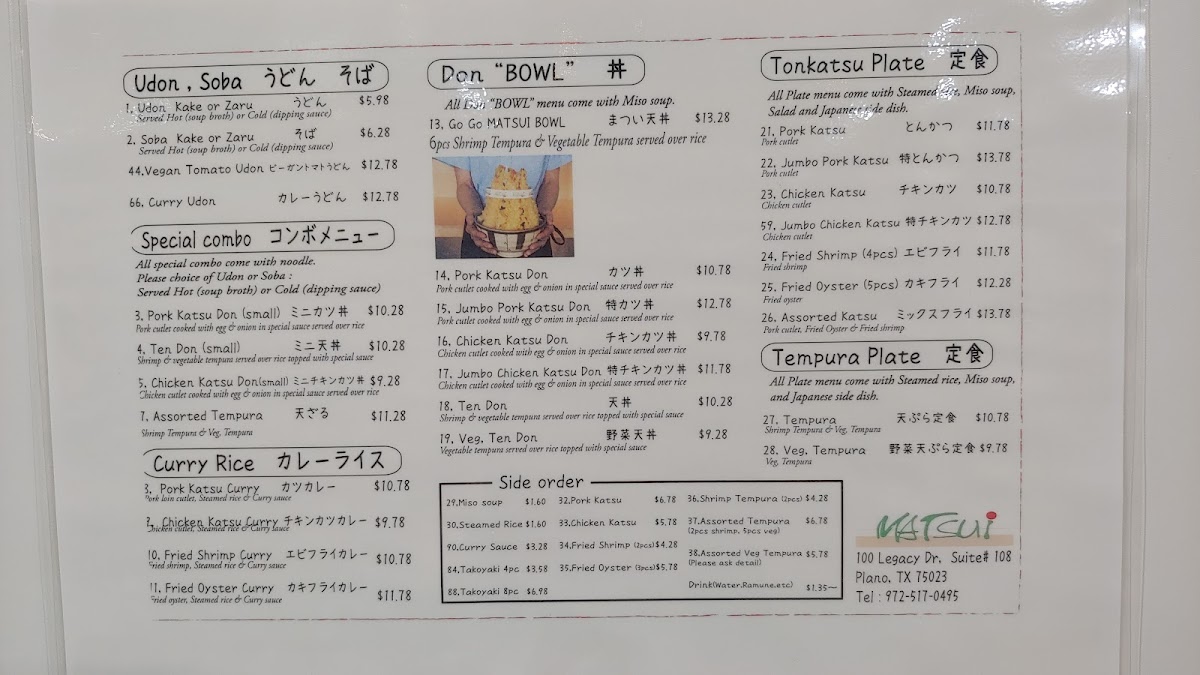 Udon , Soba うどん そば
1. Udon Kake or Zaru うどん $5.98
Served Hot (soup broth) or Cold (dipping sauce)
2. Soba Kake or Zaru そば $6.28
Served Hot (soup broth) or Cold (dipping sauce)
44.Vegan Tomato Udon ビーガントマトうどん $12.78
66. Curry Udon カレーうどん $12.78
Special combo コンボメニュー
All special combo come with noodle.
Please choice of Udon or Soba :
Served Hot (soup broth) or Cold (dipping sauce)
3. Pork Katsu Don (small) ミニカツ丼 $10.28
Pork cutlet cooked with egg & onion in special sauce served over rice
4. Ten Don (small) ミニ天丼 $10.28
Shrimp & vegetable tempura served over rice topped with special sauce
5. Chicken Katsu Don(small) ミニチキンカツ丼 $9.28
Chicken cutlet cooked with egg & onion in special sauce served over rice
7. Assorted Tempura 天ざる $11.28
Shrimp Tempura & Veg. Tempura
Curry Rice カレーライス
Pork Katsu Curry カツカレー $10.78
Pork loin cutlet, Steamed rice & Curry sauce
Chicken Katsu Curry チキンカツカレー $9.78
Chicken cutlet, Steamed rice & Curry sauce
10. Fried Shrimp Curry エビフライカレー $10.78
Fried shrimp, Steamed rice & Curry sauce
11. Fried Oyster Curry カキフライカレー $11.78
Fried oyster, Steamed rice & Curry sauce
Don “BOWL” 丼
All Don “BOWL” menu come with Miso soup.
13. Go Go MATSUI BOWL まつい天丼 $13.28
6pcs Shrimp Tempura & Vegetable Tempura served over rice
14. Pork Katsu Don カツ丼 $10.78
Pork cutlet cooked with egg & onion in special sauce served over rice
15. Jumbo Pork Katsu Don 特カツ丼 $12.78
Pork cutlet cooked with egg & onion in special sauce served over rice
16. Chicken Katsu Don チキンカツ丼 $9.78
Chicken cutlet cooked with egg & onion in special sauce served over rice
17. Jumbo Chicken Katsu Don 特チキンカツ丼 $11.78
Chicken cutlet cooked with egg & onion in special sauce served over rice
18. Ten Don 天丼 $10.28
Shrimp & vegetable tempura served over rice topped with special sauce
19. Veg. Ten Don 野菜天丼 $9.28
Vegetable tempura served over rice topped with special sauce
Tonkatsu Plate 定食
All Plate menu come with Steamed rice, Miso soup,
Salad and Japanese side dish.
21. Pork Katsu とんかつ $11.78
Pork cutlet
22. Jumbo Pork Katsu 特とんかつ $13.78
Pork cutlet
23. Chicken Katsu チキンカツ $10.78
Chicken cutlet
59. Jumbo Chicken Katsu 特チキンカツ $12.78
Chicken cutlet
24. Fried Shrimp (4pcs) エビフライ $11.78
Fried shrimp
25. Fried Oyster (5pcs) カキフライ $12.28
Fried oyster
26. Assorted Katsu ミックスフライ $13.78
Pork cutlet, Fried Oyster & Fried shrimp
Tempura Plate 定食
All Plate menu come with Steamed rice, Miso soup,
and Japanese side dish.
27. Tempura 天ぷら定食 $10.78
Shrimp Tempura & Veg. Tempura
28. Veg. Tempura 野菜天ぷら定食 $9.78
Veg. Tempura
Side order
29.Miso soup $1.60
30.Steamed Rice $1.60
90.Curry Sauce $3.28
84.Takoyaki 4pc $3.58
88.Takoyaki 8pc $6.98
32.Pork Katsu $6.78
33.Chicken Katsu $5.78
34.Fried Shrimp (2pcs) $4.28
35.Fried Oyster (3pcs) $5.78
36.Shrimp Tempura (2pcs) $4.28
37.Assorted Tempura $6.78
(2pcs shrimp, 5pcs veg)
38.Assorted Veg Tempura $5.78
(Please ask detail)
Drink(Water,Ramune,etc) $1.35~
MATSUi
100 Legacy Dr. Suite# 108
Plano. TX 75023
Tel : 972-517-0495